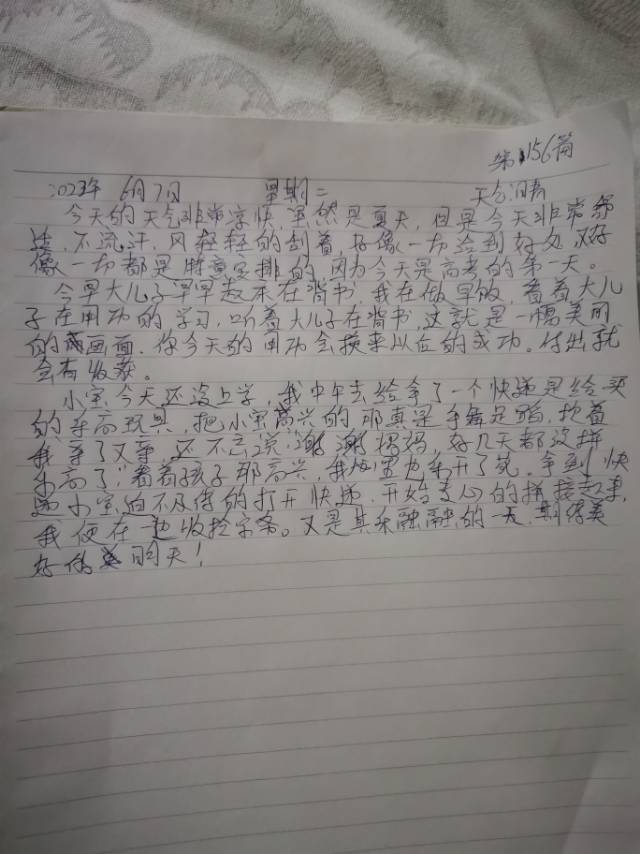 第156篇
2023年 6月7日 星期二 天气:晴
今天的天气非常凉快,虽然是夏天,但是今天非常舒
适,不流汗,风轻轻的刮着,好像一切恰到好处,又好
像一切都是特意安排的,因为今天是高考的第一天。
今早大儿子早早起来在背书,我在做早饭,看着大儿
子在用功的学习,听着大儿子在背书,这就是一幅美丽
的画面,你今天的用功会换来以后的成功。付出就
会有收获。
小宝今天还没上学,我中午去给拿了一个快递是给买
的乐高玩具,把小宝高兴的那真是手舞足蹈,抱着
我亲了又亲,还不忘说:谢谢妈妈,好几天都没拼
乐高了,看着孩子那高兴,我心里也乐开了花。拿到快
递小宝迫不及待的打开快递,开始专心的拼接起来,
我便在一边收拾家务。又是其乐融融的一天,期待美
好的明天!